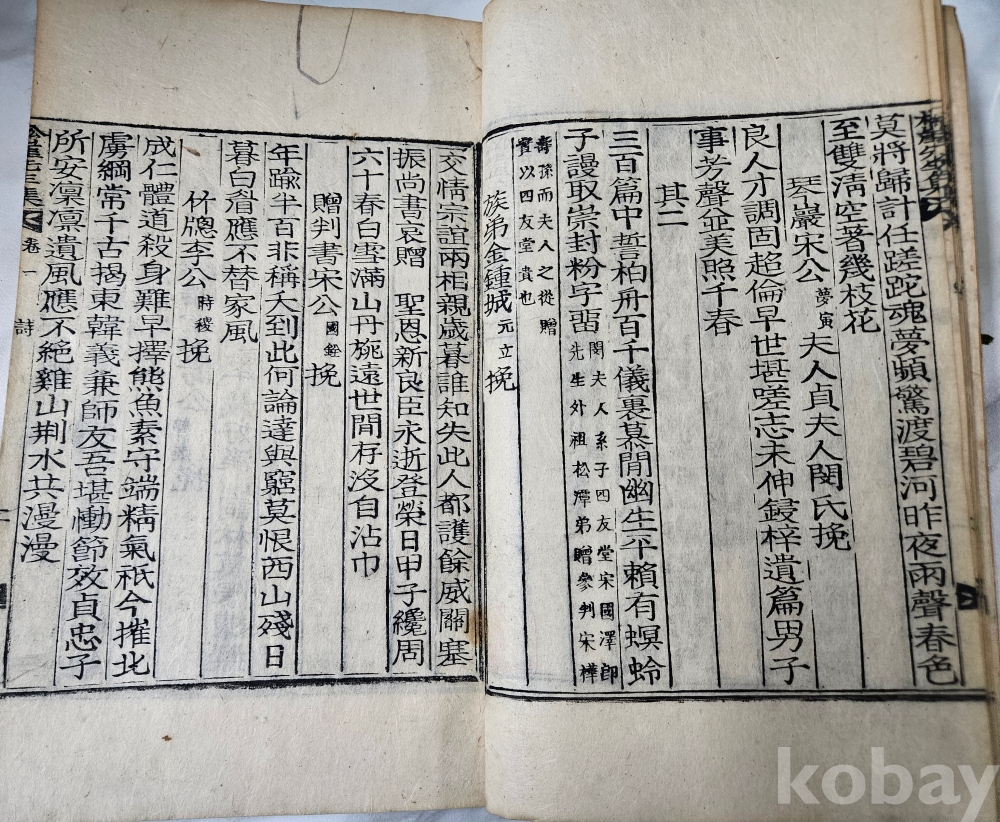 莫將歸計任蹉跎魂夢頻驚渡碧河昨夜雨聲春色
至雙淸空著幾枝花
琴巖宋公夢寅夫人貞夫人閔氏挽
良人才調固超倫早世堪嗟志未伸鋟梓遺篇男子
事芳聲並美照千春
其二
三百篇中誓柏舟百千儀裏慕閒幽生平賴有螟蛉
子謾取崇封粉字畱閔夫人系子四友堂宋國澤卽
先生外祖松潭弟贈參判宋𣞀
壽孫而夫人之從贈
實以四友堂貴也
族弟金鍾城元立挽
交情宗誼兩相親歲暮誰知失此人都護餘威關塞
振尙書哀贈 聖恩新良臣永逝登榮日甲子纔周
六十春白雪滿山丹旐遠世間存沒自沾巾
贈判書宋公國銓挽
年踰半百非稱夭到此何論達與窮莫恨西山殘日
暮白眉應不替家風
竹牕李公時稷挽
成仁體道殺身難早擇熊魚素守端精氣祇今摧北
虜綱常千古揭東韓義兼師友吾堪慟節效貞忠子
所安凜凜遺風應不絶雞山荆水共漫漫
卷一
詩
kobay